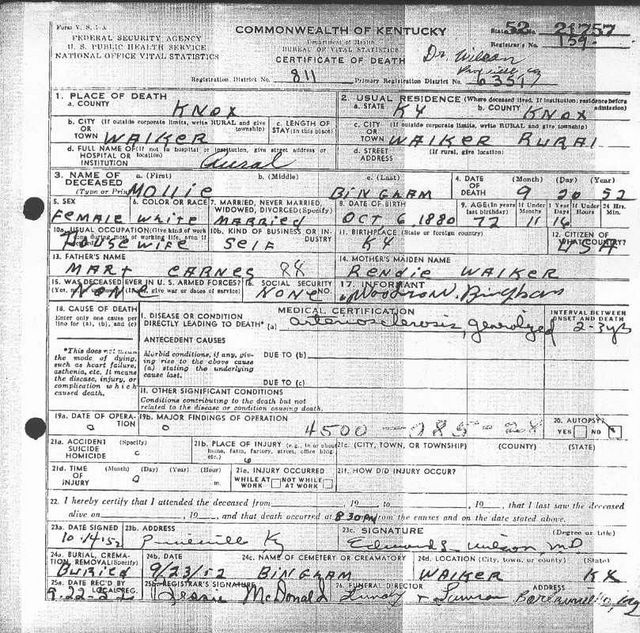 Form V. S. 1-A
FEDERAL SECURITY AGENCY
U. S. PUBLIC HEALTH SERVICE
NATIONAL OFFICE VITAL STATISTICS
COMMONWEALTH OF KENTUCKY
Department of Health
BUREAU OF VITAL STATISTICS
CERTIFICATE OF DEATH
52 21757
Registrar's No. 159
Dr. Wilson
Pineville, Ky
Registration District No. 811 Primary Registration District No. 6351
1. PLACE OF DEATH
a. COUNTY KNOX
2. USUAL RESIDENCE (Where deceased lived. If institution: residence before admission)
a. STATE KY b. COUNTY KNOX
b. CITY (If outside corporate limits, write RURAL and give township) OR TOWN WALKER
c. LENGTH OF STAY (in this place)
c. CITY (If outside corporate limits, write RURAL and give township) OR TOWN WALKER RURAL
d. FULL NAME OF (If not in hospital or institution, give street address or location) HOSPITAL OR INSTITUTION Rural
d. STREET ADDRESS (If rural, give location)
3. NAME OF DECEASED (Type or Print) a. (First) MOLLIE b. (Middle) c. (Last) BINGHAM
4. DATE OF DEATH (Month) (Day) (Year) 9 20 52
5. SEX FEMALE
6. COLOR OR RACE WHITE
7. MARRIED, NEVER MARRIED, WIDOWED, DIVORCED (Specify) MARRIED
8. DATE OF BIRTH OCT 6 1880
9. AGE (In years last birthday) 72 If Under 1 Year Months 11 Days 16 If Under 24 Hrs.
10a. USUAL OCCUPATION (Give kind of work done during most of working life, even if retired) HOUSEWIFE
10b. KIND OF BUSINESS OR INDUSTRY SELF
11. BIRTHPLACE (State or foreign country) KY
12. CITIZEN OF WHAT COUNTRY? USA
13. FATHER'S NAME MART CARNES
14. MOTHER'S MAIDEN NAME RENDIE WALKER
15. WAS DECEASED EVER IN U. S. ARMED FORCES? NONE
16. SOCIAL SECURITY NO. NONE
17. INFORMANT Woodrow Bingham
18. CAUSE OF DEATH
Enter only one cause per line for (a), (b), and (c)
MEDICAL CERTIFICATION
INTERVAL BETWEEN ONSET AND DEATH
I. DISEASE OR CONDITION DIRECTLY LEADING TO DEATH* (a) arteriosclerosis, generalized 2-3 yrs
*This does not mean the mode of dying, such as heart failure, asthenia, etc. It means the disease, injury, or complication which caused death.
ANTECEDENT CAUSES
Morbid conditions, if any, giving rise to the above cause (a) stating the underlying cause last.
DUE TO (b)
DUE TO (c)
II. OTHER SIGNIFICANT CONDITIONS
Conditions contributing to the death but not related to the disease or condition causing death.
19a. DATE OF OPERATION 0
19b. MAJOR FINDINGS OF OPERATION 0
4500
20. AUTOPSY? YES NO
21a. ACCIDENT SUICIDE HOMICIDE (Specify)
21b. PLACE OF INJURY (e.g., in or about home, farm, factory, street, office bldg., etc.)
21c. (CITY, TOWN, OR TOWNSHIP) (COUNTY) (STATE)
21d. TIME OF INJURY (Month) (Day) (Year) (Hour) m.
21e. INJURY OCCURRED WHILE AT WORK NOT WHILE AT WORK
21f. HOW DID INJURY OCCUR?
22. I hereby certify that I attended the deceased from , 19 to , 19 , that I last saw the deceased
alive on , 19 , and that death occurred at 8 30 PM from the causes and on the date stated above.
23a. DATE SIGNED 10-14-52
23b. ADDRESS Pineville Ky
23c. SIGNATURE (Degree or title) Edward S. Wilson, MD
24a. BURIAL, CREMATION, REMOVAL (Specify) BURIED
24b. DATE 9/23/52
24c. NAME OF CEMETERY OR CREMATORY BINGHAM
24d. LOCATION (City, town, or county) (State) WALKER KY
25a. DATE REC'D BY LOCAL REG. 9-22-52
25b. REGISTRAR'S SIGNATURE Jessie McDonald
26. FUNERAL DIRECTOR ADDRESS Barbourville, Ky